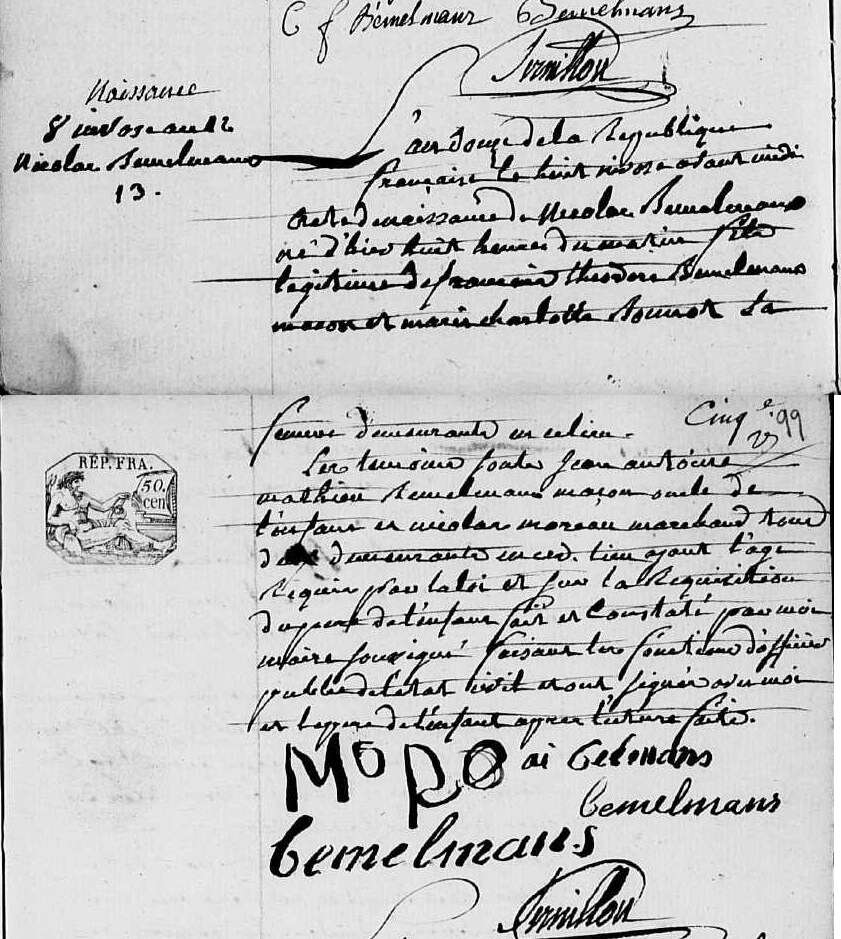 C f Bemelmans Bemelmans
Vernillon
Naissance
8 nivose an 12
Nicolas Bemelmans
13.
L'an Douze de la Republique
française le huit nivose avant midi
acte de naissance de Nicolas Bemelmans
né d'hier huit heures du matin fils
legitime de francois theodore Bemelmans
macon et marie charlotte Bounot sa
Cinq e
99
femme demeurants en ce lieu.
Les temoins sonts Jean antoine
mathieu Bemelmans maçon oncle de
L'enfant et nicolas moreau marchand tous
deux demeurants en ced. lieu ayant l'age
Requis par la loi et sur la Requisition
du pere de l'enfant fait et Constaté par moi
maire sousigné faisant les fonctions d'officier
public de l'etat civil et ont signés avec moi
et le pere de l'enfant apres lecture faite.
REP. FRA.
50.
cen
MoRo ai
bemelmans
bemelmans
Vernillon